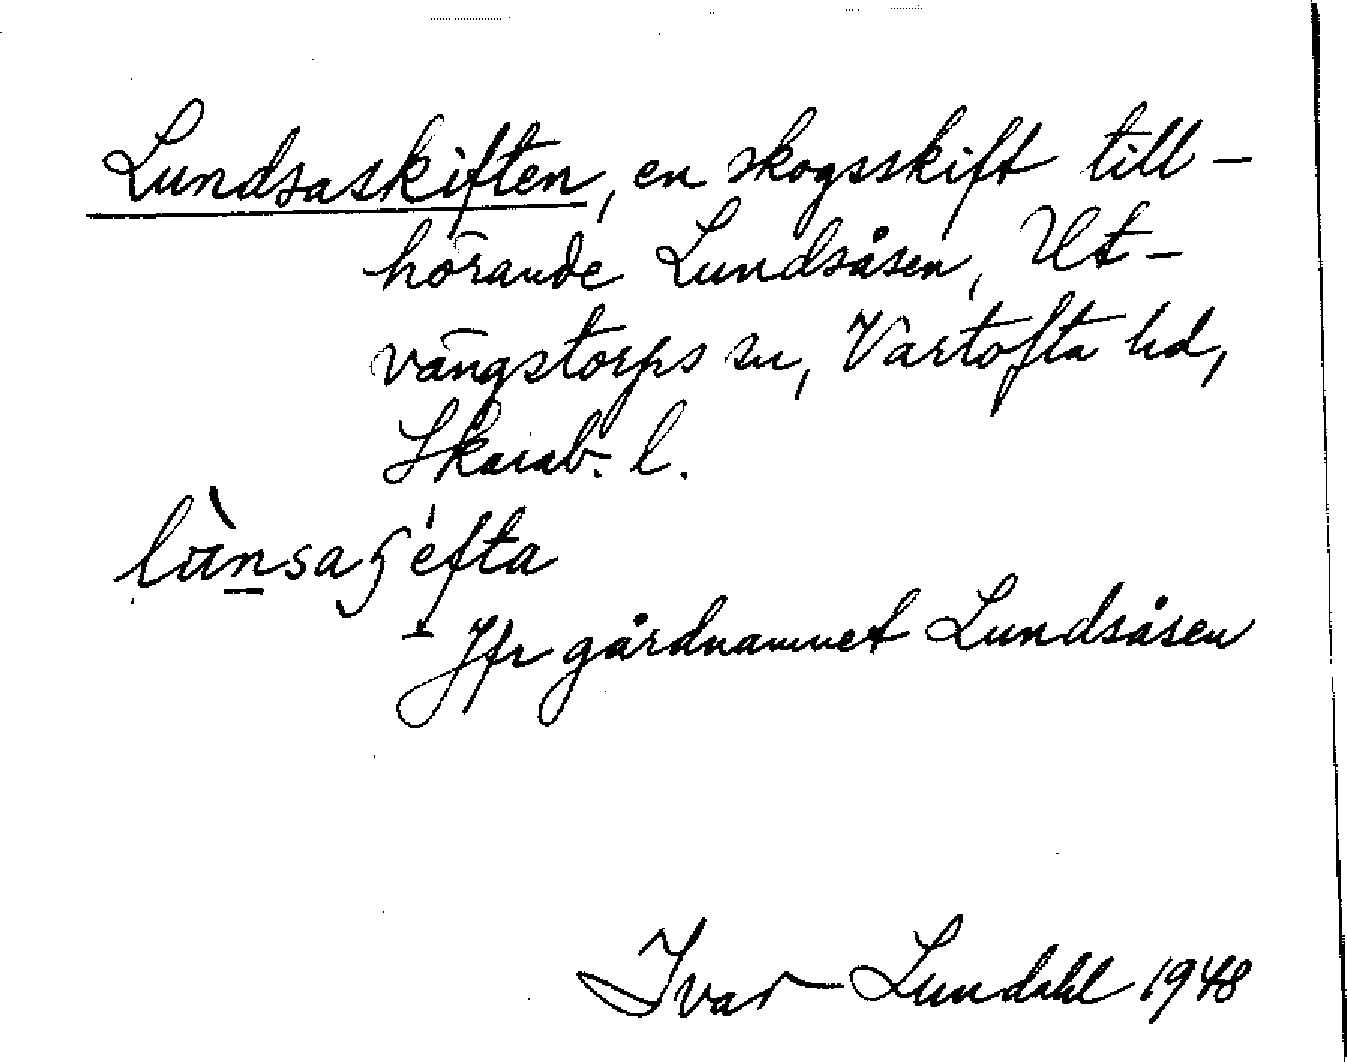 Lundsaskiften, en skogsskift till-
hörande Lundsåsen, Ut-
vängstorps sn, Vartofta hd,
Skarab. l.
Jfr gårdnamnet Lundsåsen
Ivar Lundahl 1948